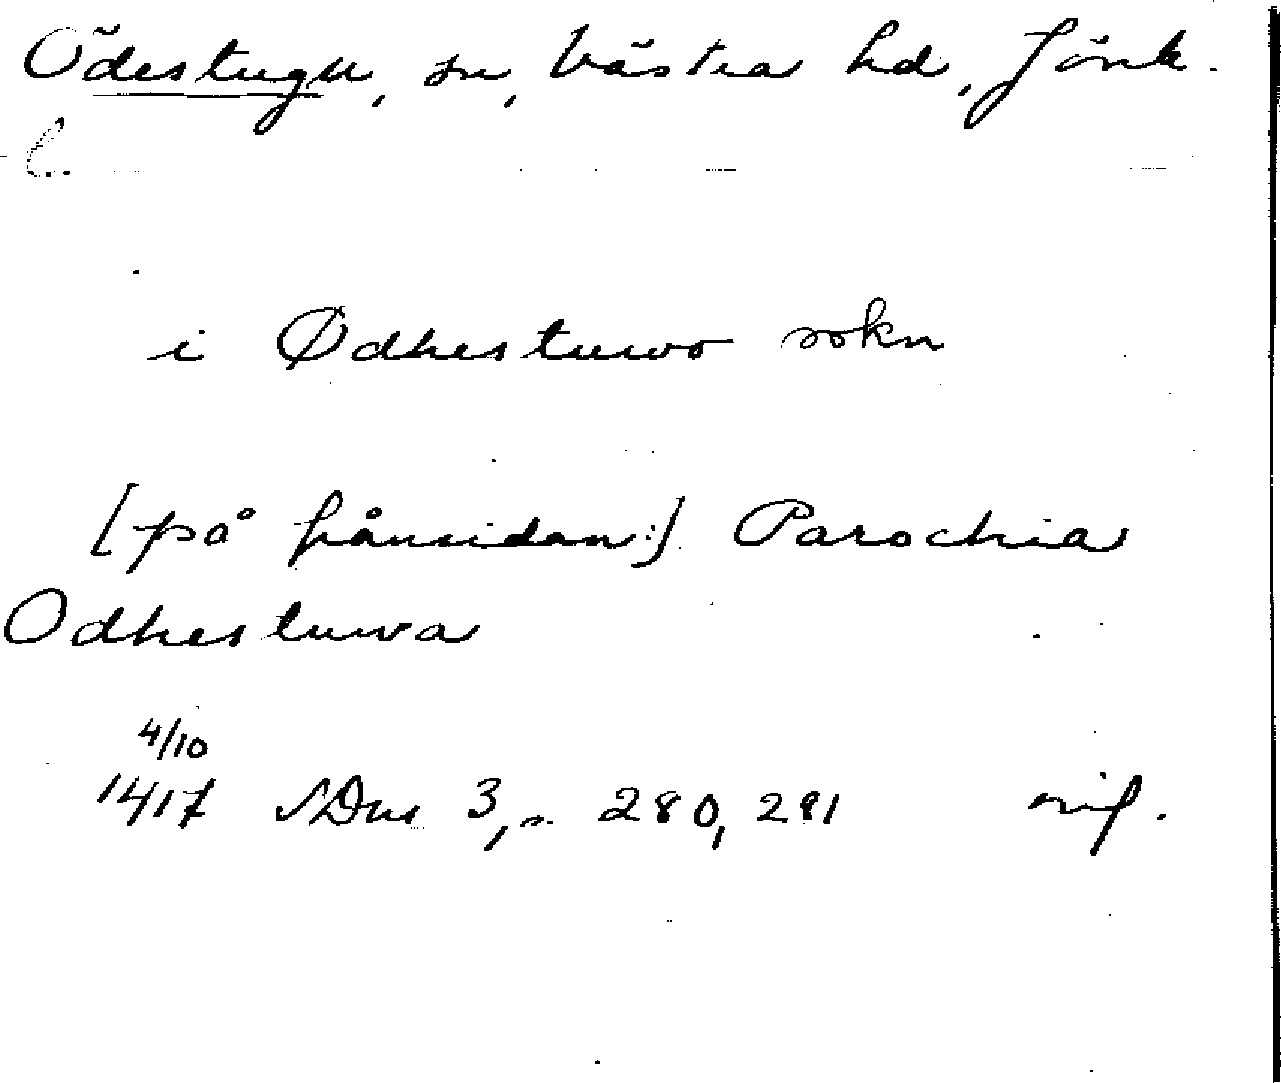 Ödestugu, sn, Västra hd, Jönk.
l.
i Ødhestuwo sokn
[på frånsidan:] Parochia
Odhestuwa
4/10
1417 SDns 3, s. 280, 281 orig.